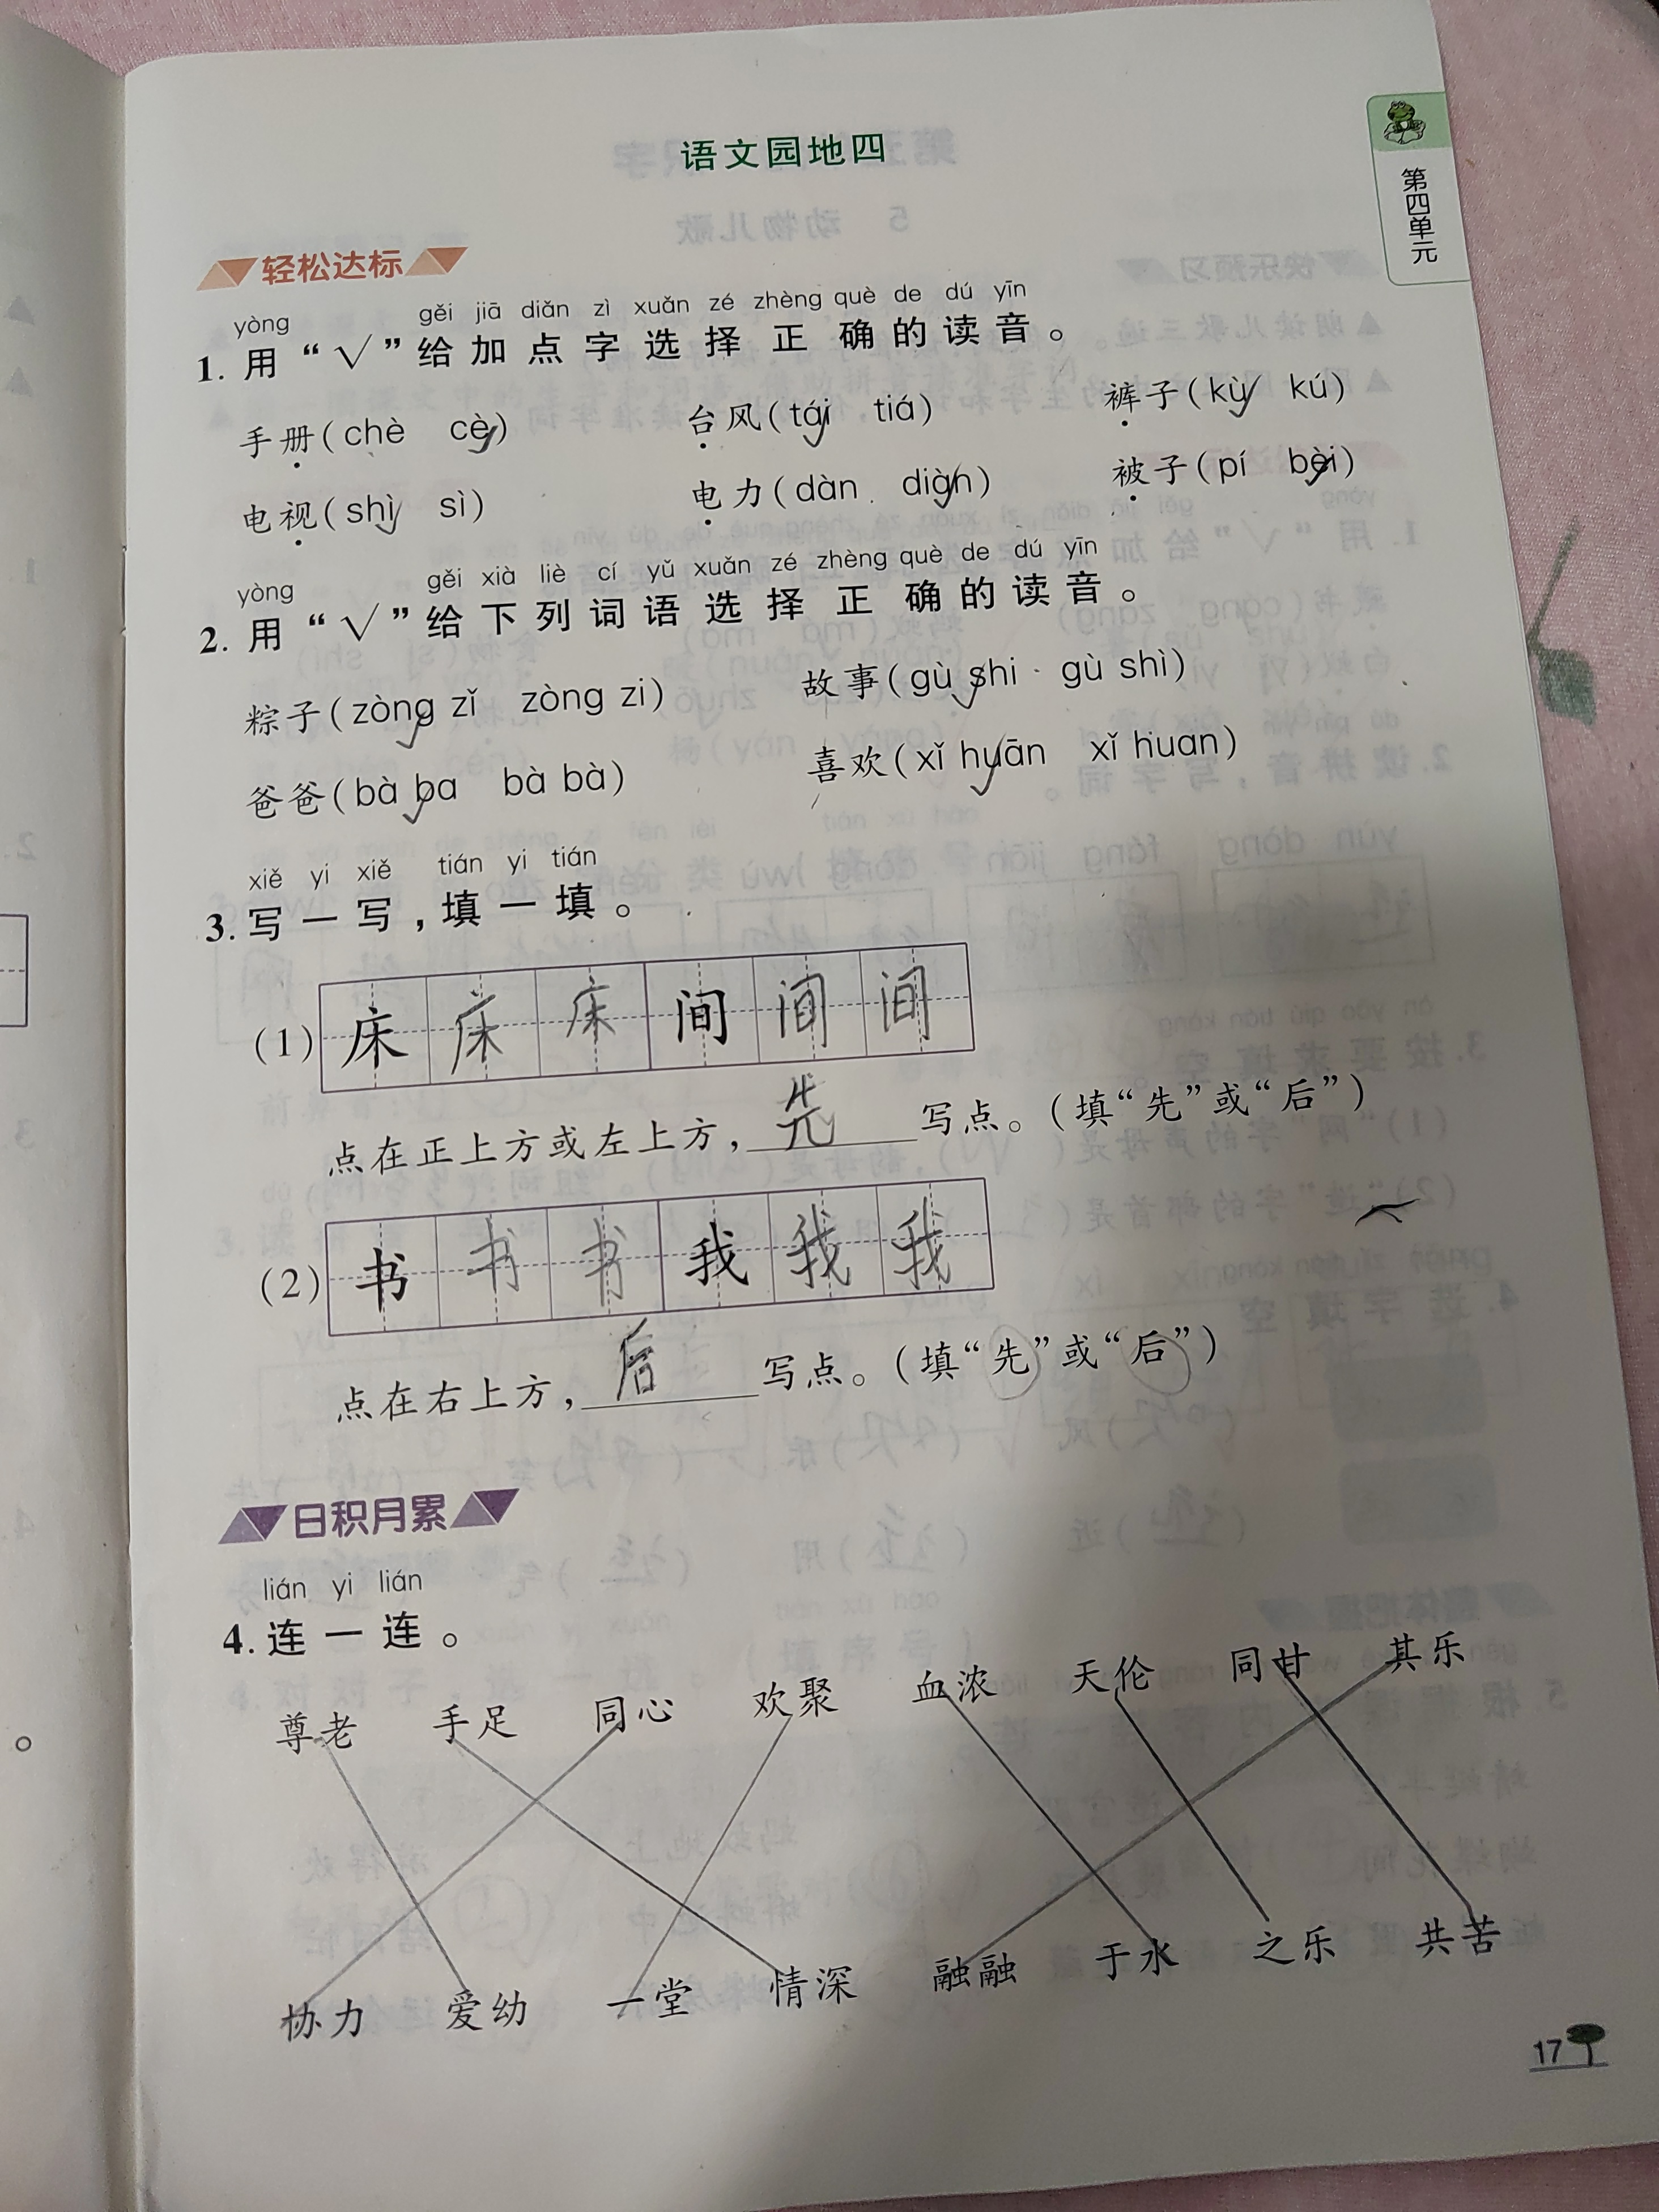 语文园地四
第四单元
轻松达标
yòng gěi jiā diǎn zì xuǎn zé zhèng què de dú yīn
1. 用“√”给加点字选择正确的读音。
手册(chè cè) 台风(tái tiá) 裤子(kù kú)
电视(shì sì) 电力(dàn diàn) 被子(pí bèi)
yòng gěi xià liè cí yǔ xuǎn zé zhèng què de dú yīn
2. 用“√”给下列词语选择正确的读音。
粽子(zòng zǐ zòng zi) 故事(gù shi gù shì)
爸爸(bà ba bà bà) 喜欢(xǐ huān xǐ huan)
xiě yi xiě tián yi tián
3. 写一写，填一填。
(1) 床 床 床 间 间 间
点在正上方或左上方，先写点。(填“先”或“后”)
(2) 书 书 书 我 我 我
点在右上方，后写点。(填“先”或“后”)
日积月累
lián yi lián
4. 连一连。
尊老 手足 同心 欢聚 血浓 天伦 同甘 其乐
协力 爱幼 一堂 情深 融融 于水 之乐 共苦
17